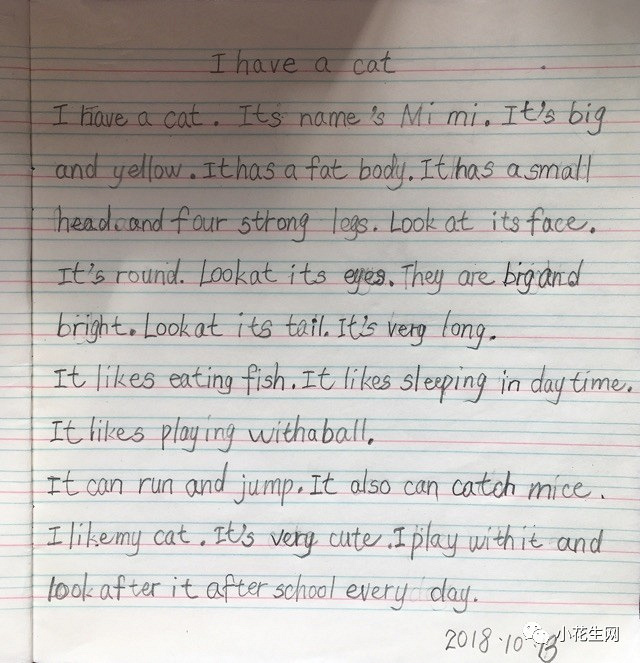 I have a cat
I have a cat. Its name's Mi mi. It's big
and yellow. It has a fat body. It has a small
head. and four strong legs. Look at its face.
It's round. Look at its eyes. They are big and
bright. Look at its tail. It's very long.
It likes eating fish. It likes sleeping in day time.
It likes playing with a ball.
It can run and jump. It also can catch mice.
I like my cat. It's very cute. I play with it and
look after it after school every day.
2018.10.
小花生网